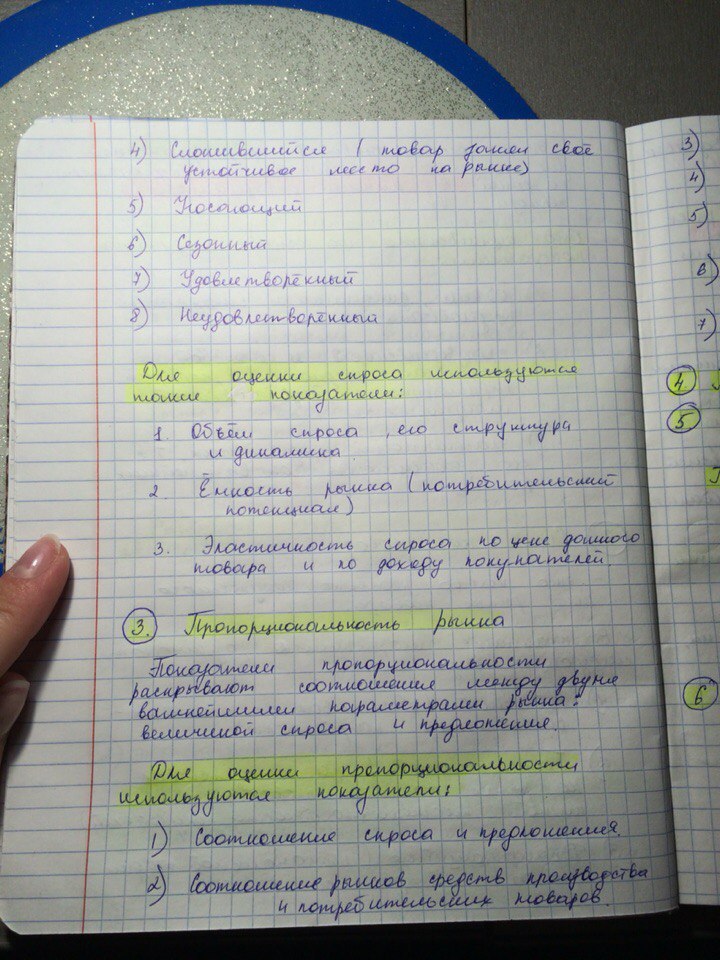 4) Сложившийся ( товар занял своё
устойчивое место на рынке)
5) Угасающий
6) Сезонный
7) Удовлетворённый
8) Неудовлетворённый
Для оценки спроса используются
такие показатели:
1. Объём спроса, его структура
и динамика.
2 Ёмкость рынка (потребительский
потенциал)
3. Эластичность спроса по цене данного
товара и по доходу покупателей.
3. Пропорциональность рынка
Показатели пропорциональности
раскрывают соотношения между двумя
важнейшими параметрами рынка:
величиной спроса и предложения.
Для оценки пропорциональности
используются показатели:
1) Соотношение спроса и предложения.
2) Соотношение рынков средств производства
и потребительских товаров.
3)
4)
5)
6)
7)
4
5
6